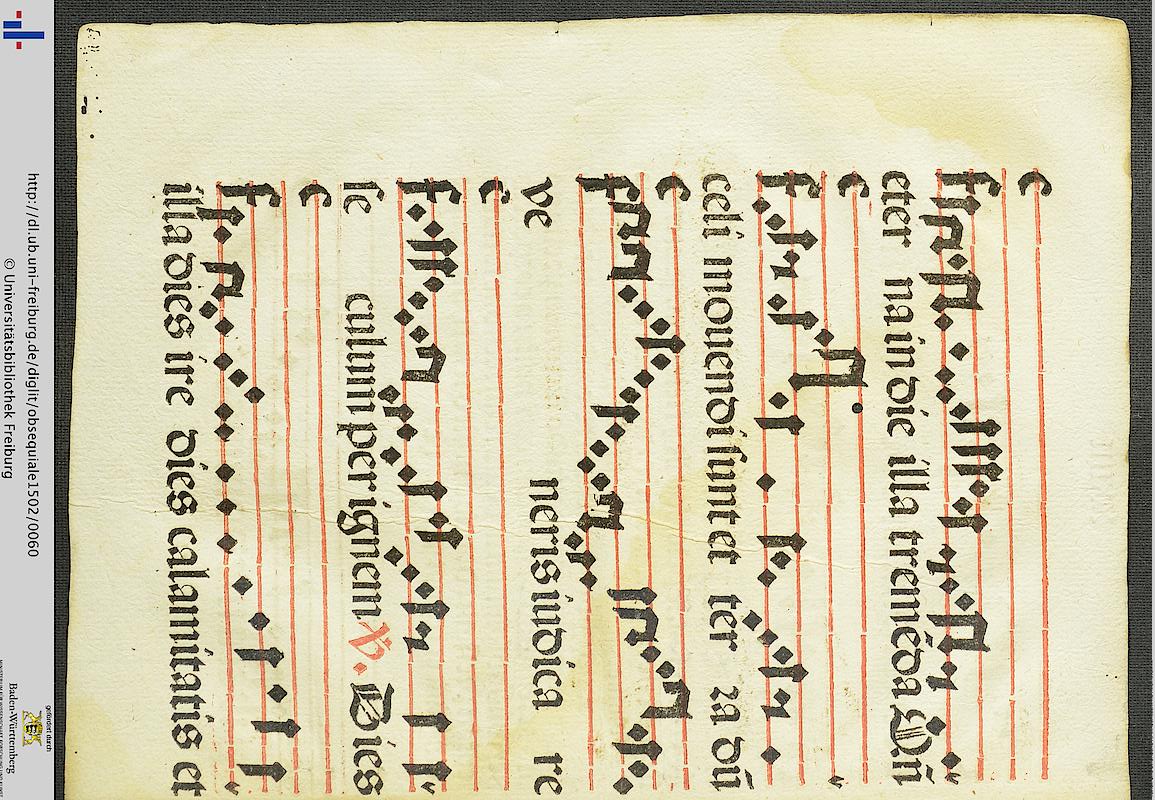 eter na in die illa tremēda Qn̄
celi mouendi sunt et ter ra dū
ve neris iudica re
se culum per ignem V. Dies
illa dies ire dies calamitatis et
http://dl.ub.uni-freiburg.de/diglit/obsequiale1502/0060
© Universitätsbibliothek Freiburg
gefördert durch
Baden-Württemberg